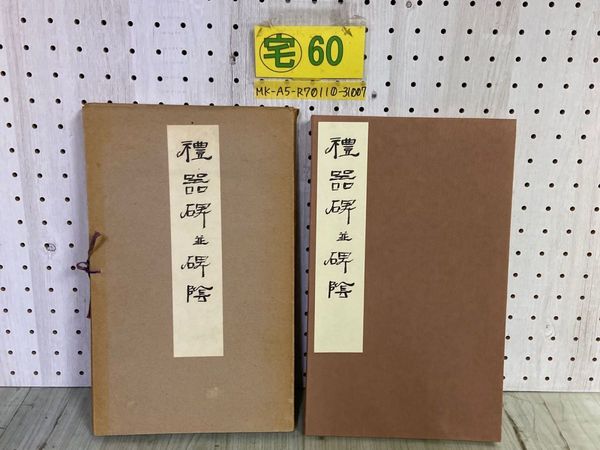 宅 60
MK-A5-R70110-31007
禮器碑並碑陰
禮器碑並碑陰